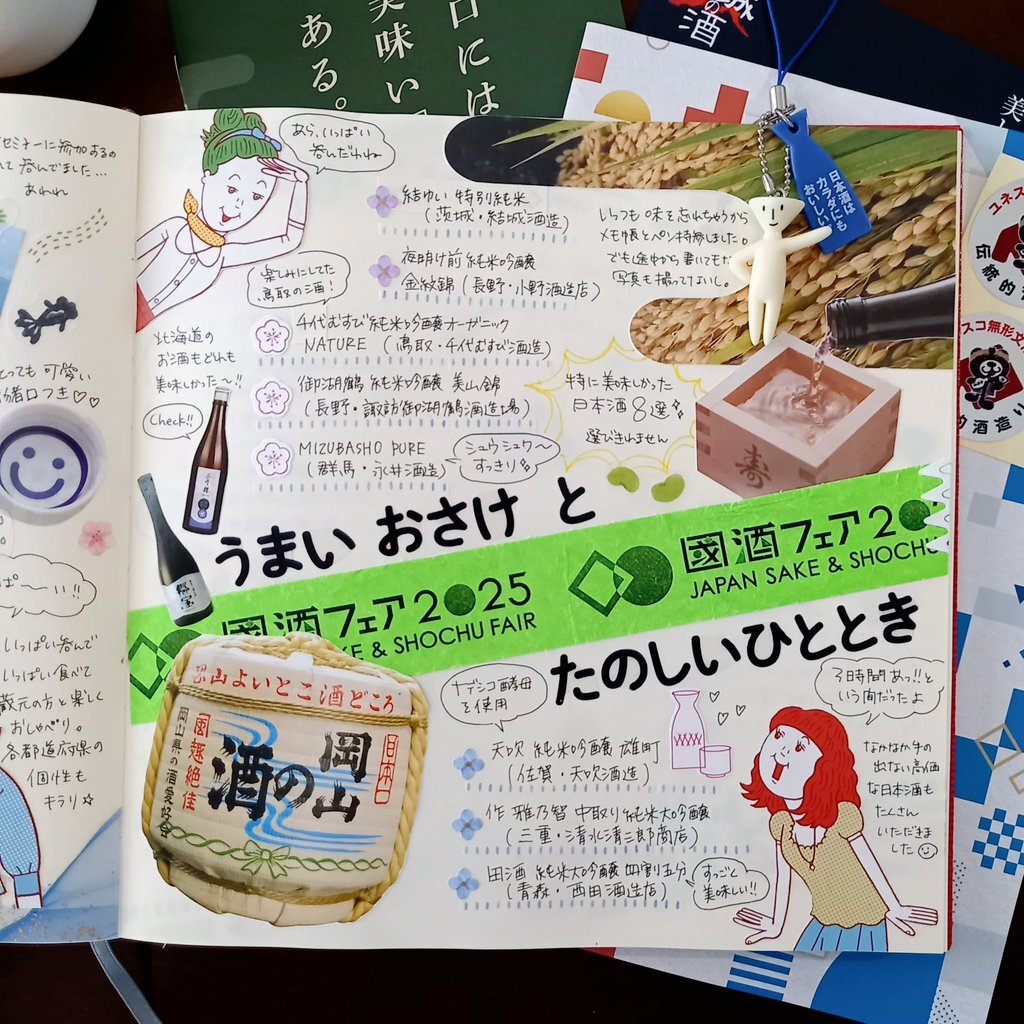 口には
美味い
ある。
の酒
ゼミナーに参加するの
て呑んでました…
あわれ
とっても可愛い
お猪口つき♡♡
いっぱい呑んで
いっぱい食べて
蔵元の方と楽しく
おしゃべり。
各都道府県の
個性も
キラリ☆
あら、いっぱい
呑んだわね
結ゆい 特別純米
(茨城・結城酒造)
いっつも味を忘れちゃうから
メモ帳とペン持参しました。
でも途中から書いてもな
写真も撮ってないし。
日本酒は
カラダにも
おいしい
夜明け前 純米吟醸
金紋錦 (長野・小野酒造店)
楽しみにしてた
鳥取の酒!
千代むすび 純米吟醸 オーガニック
NATURE (鳥取・千代むすび酒造)
北海道の
お酒もどれも
美味しかった〜!!
Check!!
御湖鶴 純米吟醸 美山錦
(長野・諏訪御湖鶴酒造場)
特に美味しかった
日本酒8選
選びきれません
MIZUBASHO PURE
(群馬・永井酒造)
シュウシュワ〜
すっきり
寿
うまい おさけ と
國酒フェア2025
JAPAN SAKE & SHOCHU
國酒フェア2025
KE & SHOCHU FAIR
たのしいひととき
山よいとこ酒どころ
岡山の酒
日本一
風越絶佳
岡山県の酒愛好会
ナデシコ酵母
を使用
3時間あっ!!と
いう間だったよ
天吹 純米吟醸 雄町
(佐賀・天吹酒造)
作 雅乃智 中取り 純米大吟醸
(三重・清水清三郎商店)
田酒 純米大吟醸 四割五分
(青森・西田酒造店)
すっごく
美味しい!!
なかなか手の
出ない高価
な日本酒も
たくさん
いただきま
した
ユネス
伝統的
スコ無形文
的酒造り